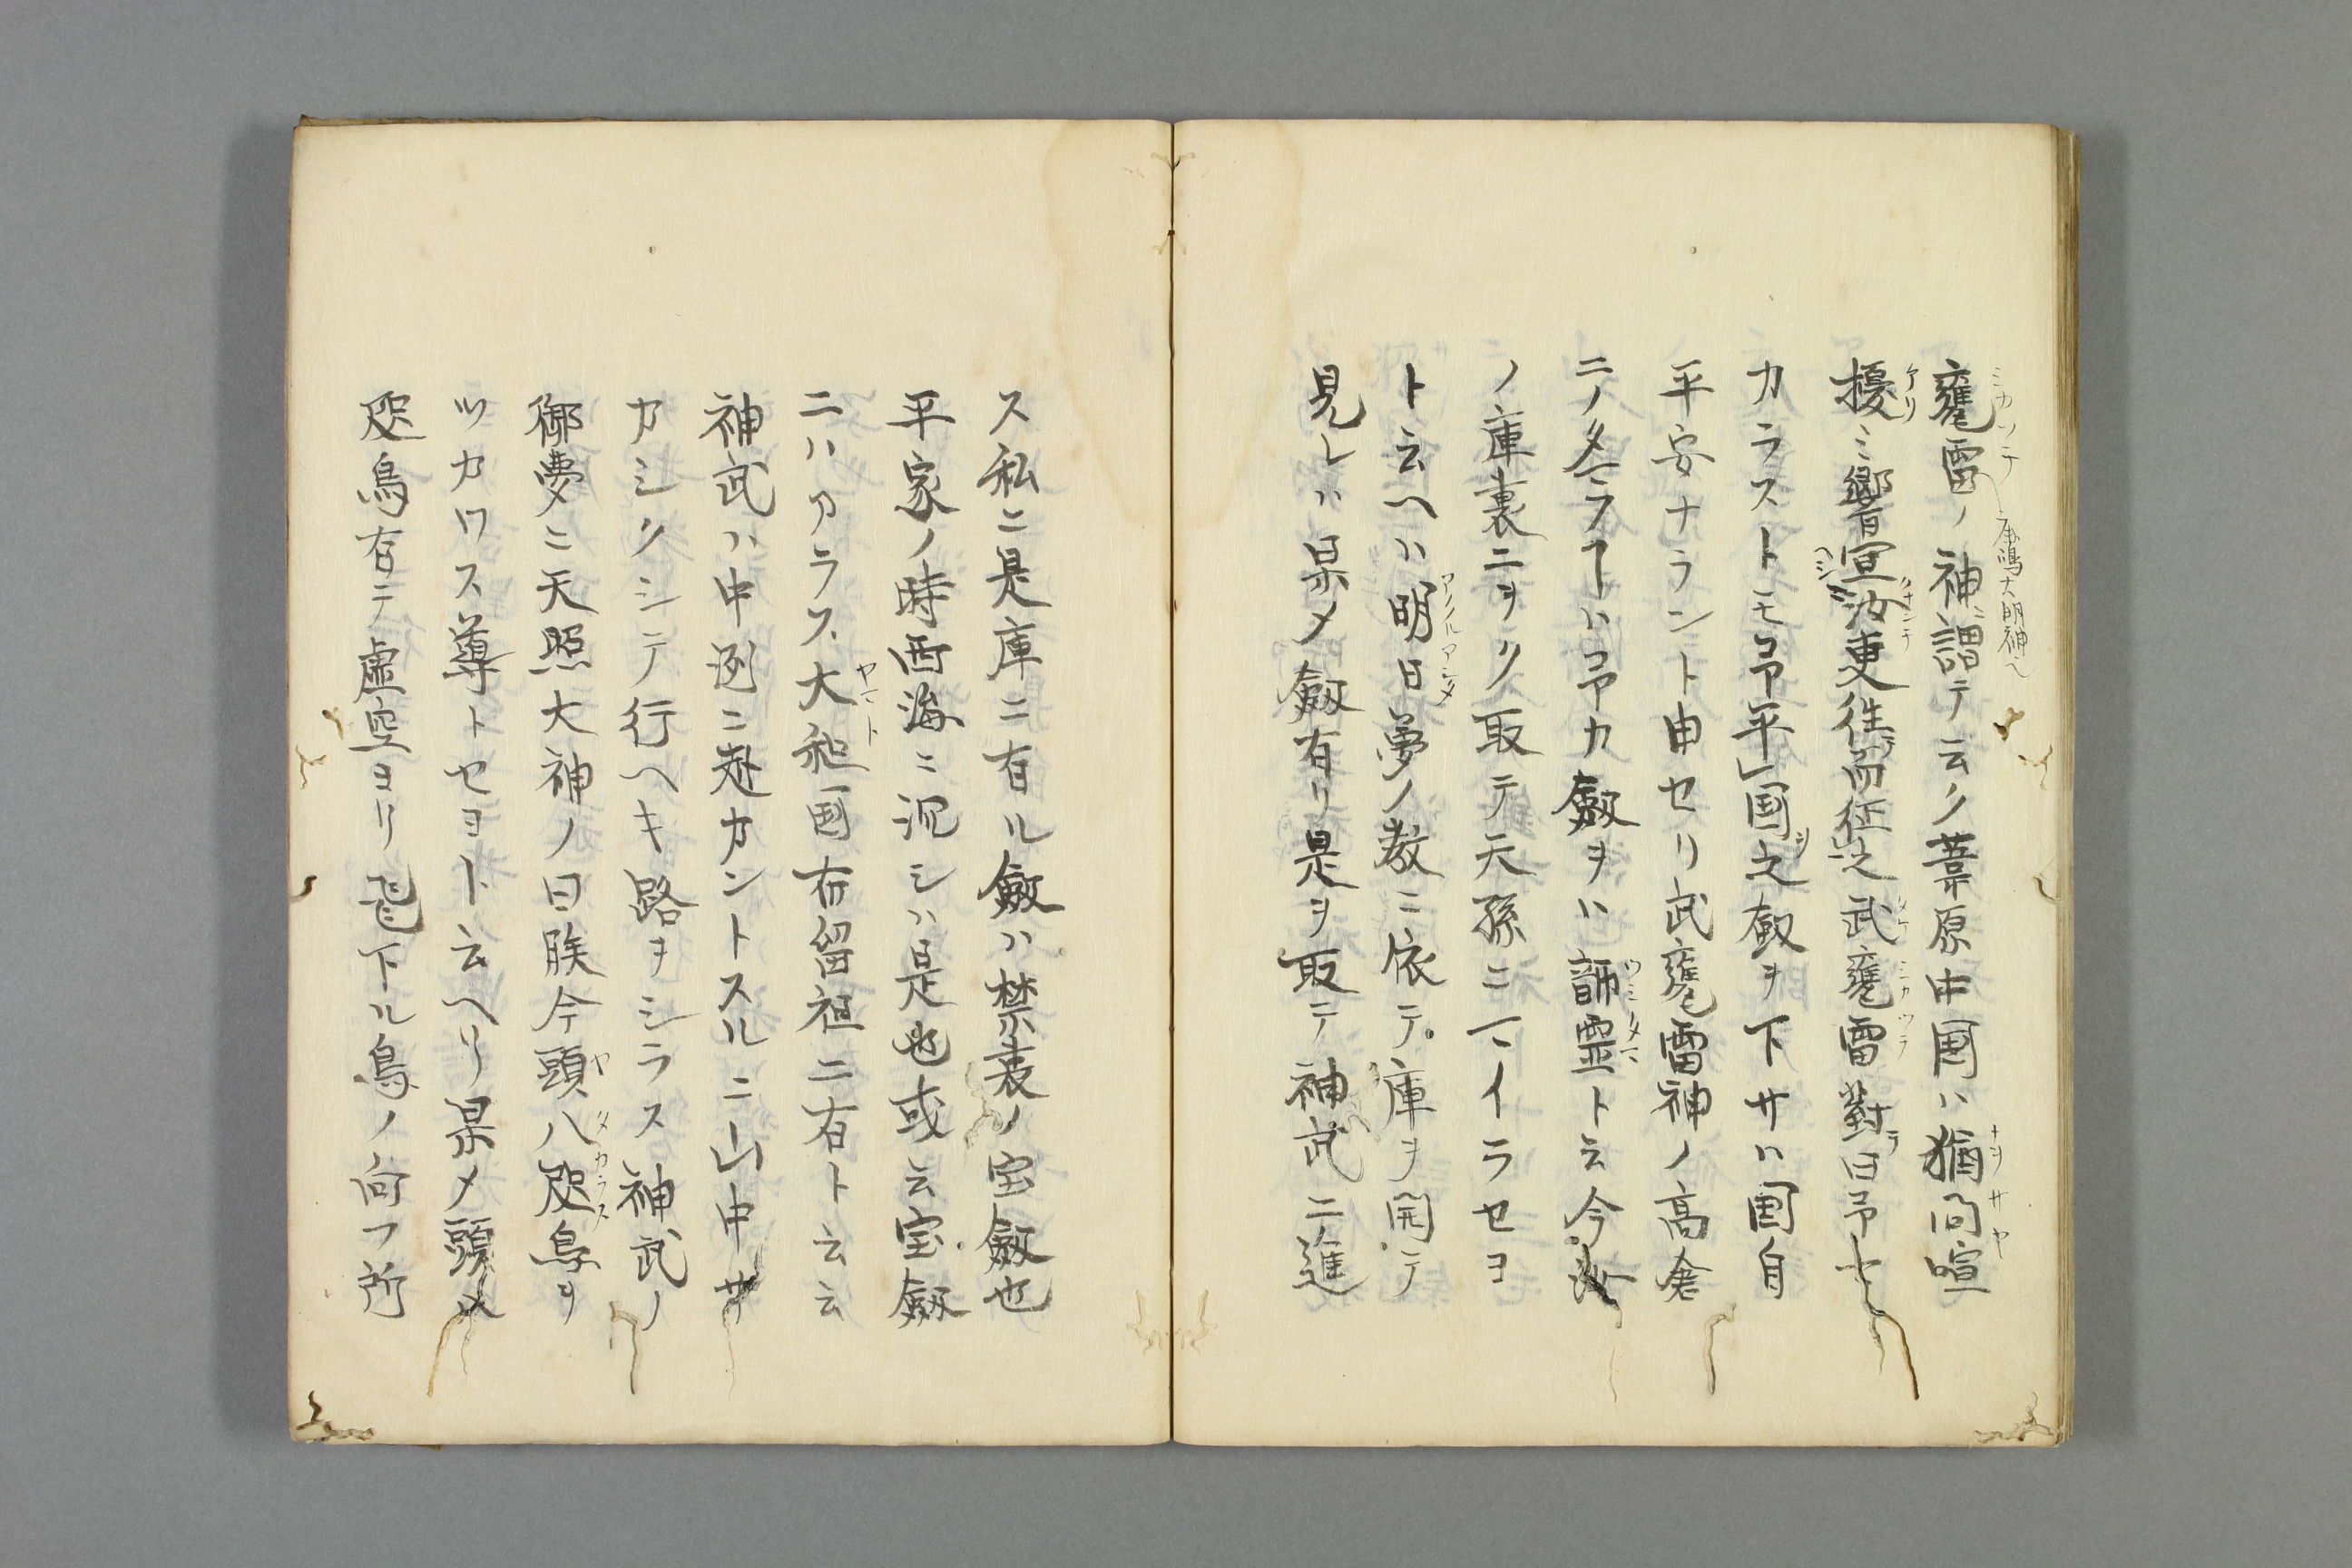 甕雷ノ神ニ謂テ云ク葦原中国ハ猶向喧
擾ミ響宣汝更往為征之武甕雷對曰予不
カラストモ予平レ国之劔ヲ下サハ国自
平安ナラント申セリ武甕雷神ノ高倉
ニノタマフハ予カ劔ヲハ韴霊ト云今汝
ノ庫裏ニヲク取テ天孫ニマイラセヨ
ト云ヘハ明日夢ノ教ニ依テ庫ヲ開テ
見レハ果メ劔有リ是ヲ取テ神武ニ進
ス私ニ是庫ニ有ル劔ハ禁裏ノ宝劔也
平家ノ時西海ニ沉シハ是也或云宝劔
ニハアラス大和国布留社ニ有ト云云
神武ハ中国ニ赴カントスルニ山中サ
カシクシテ行ヘキ路ヲシラス神武ノ
御夢ニ天照大神ノ曰朕今頭八咫烏ヲ
ツカワス導トセヨト云ヘリ果メ頭八
咫烏有テ虚空ヨリ飛下ル烏ノ向フ所